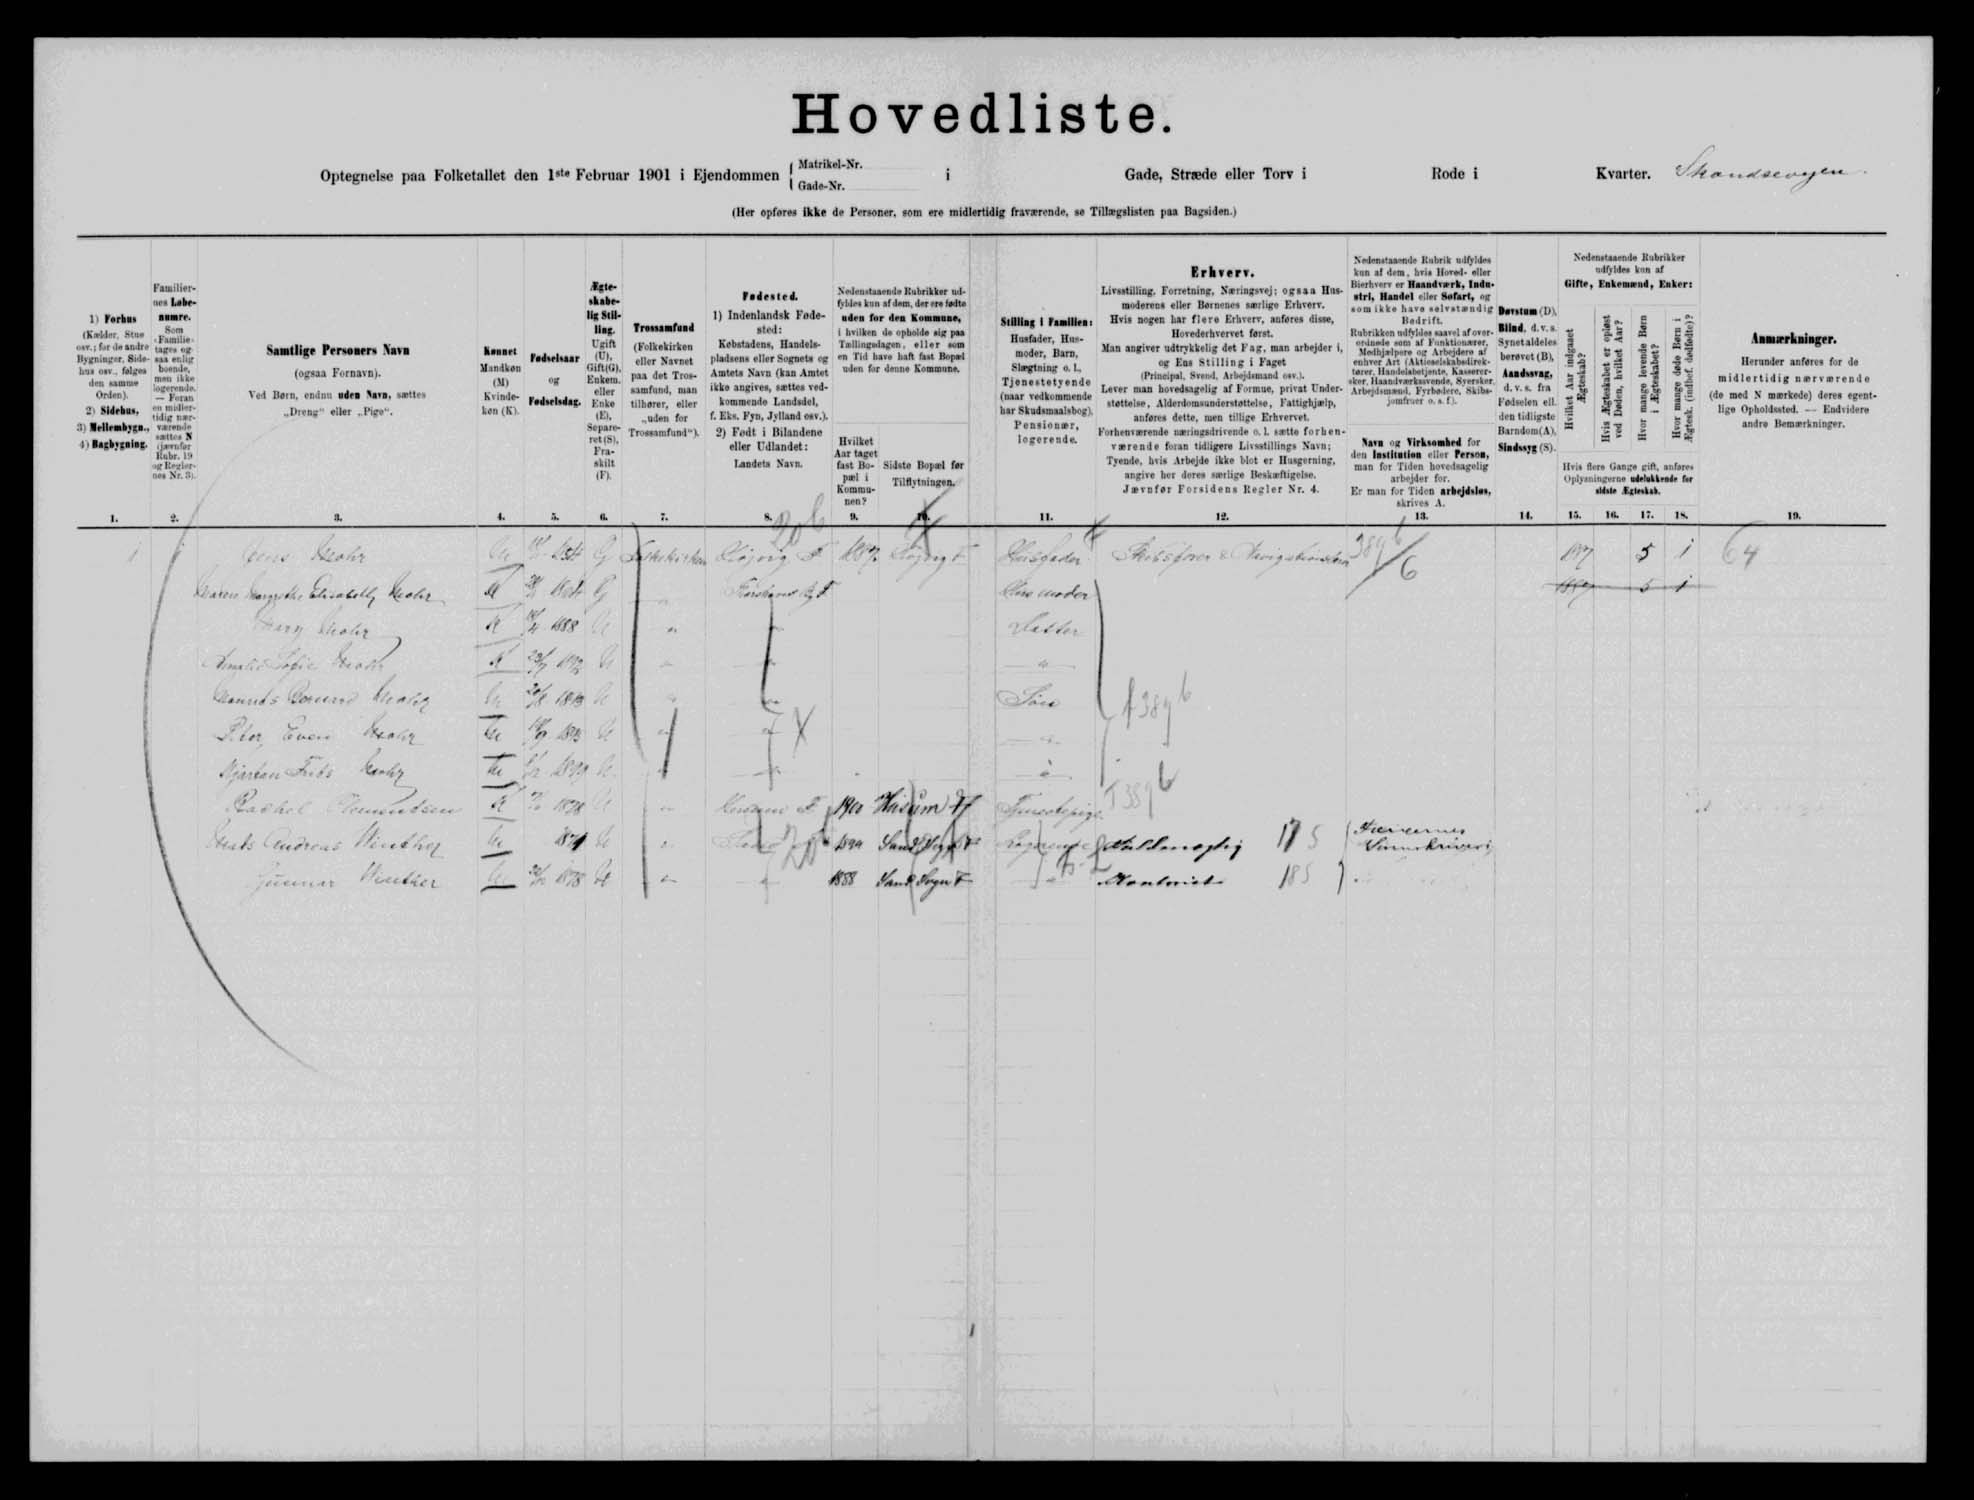 Hovedliste.
Optegnelse paa Folketallet den 1ste Februar 1901 i Ejendommen { Matrikel-Nr. Gade-Nr. i Gade, Stræde eller Torv i Rode i Kvarter. Skandsevejen.
(Her opføres ikke de Personer, som ere midlertidig fraværende, se Tillægslisten paa Bagsiden.)
1) Forhus
(Kælder, Stue
osv.; for de andre
Bygninger, Side-
hus osv., følges
den samme
Orden).
2) Sidehus,
3) Mellembygn.,
4) Bagbygning.
1.
Familier-
nes Løbe-
numre.
Som
"Familie"
tages og-
saa enlig
boende,
men ikke
logerende.
— Foran
en midler-
tidig nær-
værende
sættes N
(jævnfør
Rubr. 19
og Regler-
nes Nr. 3).
2.
Samtlige Personers Navn
(ogsaa Fornavn).
Ved Børn, endnu uden Navn, sættes
„Dreng" eller „Pige".
3.
Kønnet
Mandkøn
(M)
Kvinde-
køn (K).
4.
Fødselsaar
og
Fødselsdag.
5.
Ægte-
skabe-
lig Stil-
ling.
Ugift
(U),
Gift(G),
Enkem.
eller
Enke
(E),
Separe-
ret(S),
Fra-
skilt
(F).
6.
Trossamfund
(Folkekirken
eller Navnet
paa det Tros-
samfund, man
tilhører, eller
„uden for
Trossamfund").
7.
Fødested.
1) Indenlandsk Føde-
sted:
Købstadens, Handels-
pladsens eller Sognets og
Amtets Navn (kan Amtet
ikke angives, sættes ved-
kommende Landsdel,
f. Eks. Fyn, Jylland osv.).
2) Født i Bilandene
eller Udlandet:
Landets Navn.
8.
Nedenstaaende Rubrikker ud-
fyldes kun af dem, der ere fødte
uden for den Kommune,
i hvilken de opholde sig paa
Tællingsdagen, eller som
en Tid have haft fast Bopæl
uden for denne Kommune.
Hvilket
Aar taget
fast Bo-
pæl i
Kommu-
nen?
9.
Sidste Bopæl før
Tilflytningen.
10.
Stilling i Familien:
Husfader, Hus-
moder, Barn,
Slægtning o. l.,
Tjenestetyende
(naar vedkommende
har Skudsmaalsbog),
Pensionær,
logerende.
11.
Erhverv.
Livsstilling, Forretning, Næringsvej; ogsaa Hus-
moderens eller Børnenes særlige Erhverv.
Hvis nogen har flere Erhverv, anføres disse,
Hovederhvervet først.
Man angiver udtrykkelig det Fag, man arbejder i,
og Ens Stilling i Faget
(Principal, Svend, Arbejdsmand osv.).
Lever man hovedsagelig af Formue, privat Under-
støttelse, Alderdomsunderstøttelse, Fattighjælp,
anføres dette, men tillige Erhvervet.
Forhenværende næringsdrivende o. l. sætte forhen-
værende foran tidligere Livsstillings Navn;
Tyende, hvis Arbejde ikke blot er Husgerning,
angive her deres særlige Beskæftigelse.
Jævnfør Forsidens Regler Nr. 4.
12.
Nedenstaaende Rubrik udfyldes
kun af dem, hvis Hoved- eller
Bierhverv er Haandværk, Indu-
stri, Handel eller Søfart, og
som ikke have selvstændig
Bedrift.
Rubrikken udfyldes saavel af over-
ordnede som af Funktionærer,
Medhjælpere og Arbejdere af
enhver Art (Aktieselskabsdirek-
tører, Handelsbetjente, Kasserer-
sker, Haandværkssvende, Syersker,
Arbejdsmænd, Fyrbødere, Skibs-
jomfruer o. s. f.).
Navn og Virksomhed for
den Institution eller Person,
man for Tiden hovedsagelig
arbejder for.
Er man for Tiden arbejdsløs,
skrives A.
13.
Døvstum (D),
Blind, d. v. s.
Synet aldeles
berøvet (B),
Aandssvag,
d. v. s. fra
Fødselen ell.
den tidligste
Barndom(A),
Sindssyg (S).
14.
Nedenstaaende Rubrikker
udfyldes kun af
Gifte, Enkemænd, Enker:
Hvilket Aar indgaaet
Ægteskab?
Hvis Ægteskabet er opløst
ved Døden, hvilket Aar?
Hvor mange levende Børn
i Ægteskabet?
Hvor mange døde Børn i
Ægtesk. (indbef. dødfødte)?
Hvis flere Gange gift, anføres
Oplysningerne udelukkende for
sidste Ægteskab.
15. 16. 17. 18.
Anmærkninger.
Herunder anføres for de
midlertidig nærværende
(de med N mærkede) deres egent-
lige Opholdssted. — Endvidere
andre Bemærkninger.
19.
1 1 Jens Mohr M G Folkekirken F Husfader Skibsfører & 389 b 5 1 64
Maren Margrethe Elisabeth Mohr K 1864 G Thorshavn F Husmoder 1887 5 1
Mary Mohr K 1888 U " Datter
Amalie Sofie Mohr K 1892 U " "
Bernard Mohr M U " Søn
Peter Mohr M U " "
Kjartan Mohr M 1899 U " "
Rachel Clementsen K 1878 U " F 1900 Husum F Tjenestepige
Andreas Winther M 1871 U " Sand Sogn F Logerende Fuldmægtig 175
Gunnar Winther M 1878 U " 1888 Sand Sogn F " Kontorist 185